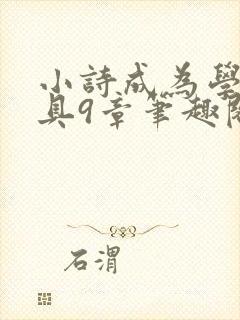 小詩成為學
具9章筆趣閱
石渭